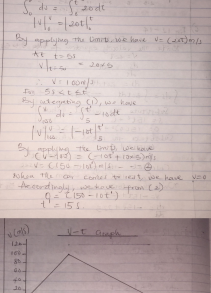 ∫ dv = ∫ 20 dt
|v| = |20t|
By applying the limit, we have v = (20t) m/s
At t = 5s
v = 20×5
∴ v = 100 m/s
On 5s < t ≤ t'
By integrating (1), we have
∫ dv = ∫ -10 dt
|v| = |-10t|
By applying the limit, we have
v = (150 - 10t) m/s
When the car comes to rest, we have v=0
Accordingly, we have from (2)
0 = (150 - 10t')
t' = 15s
v (m/s)
v-t Graph
120
100
80
60
40